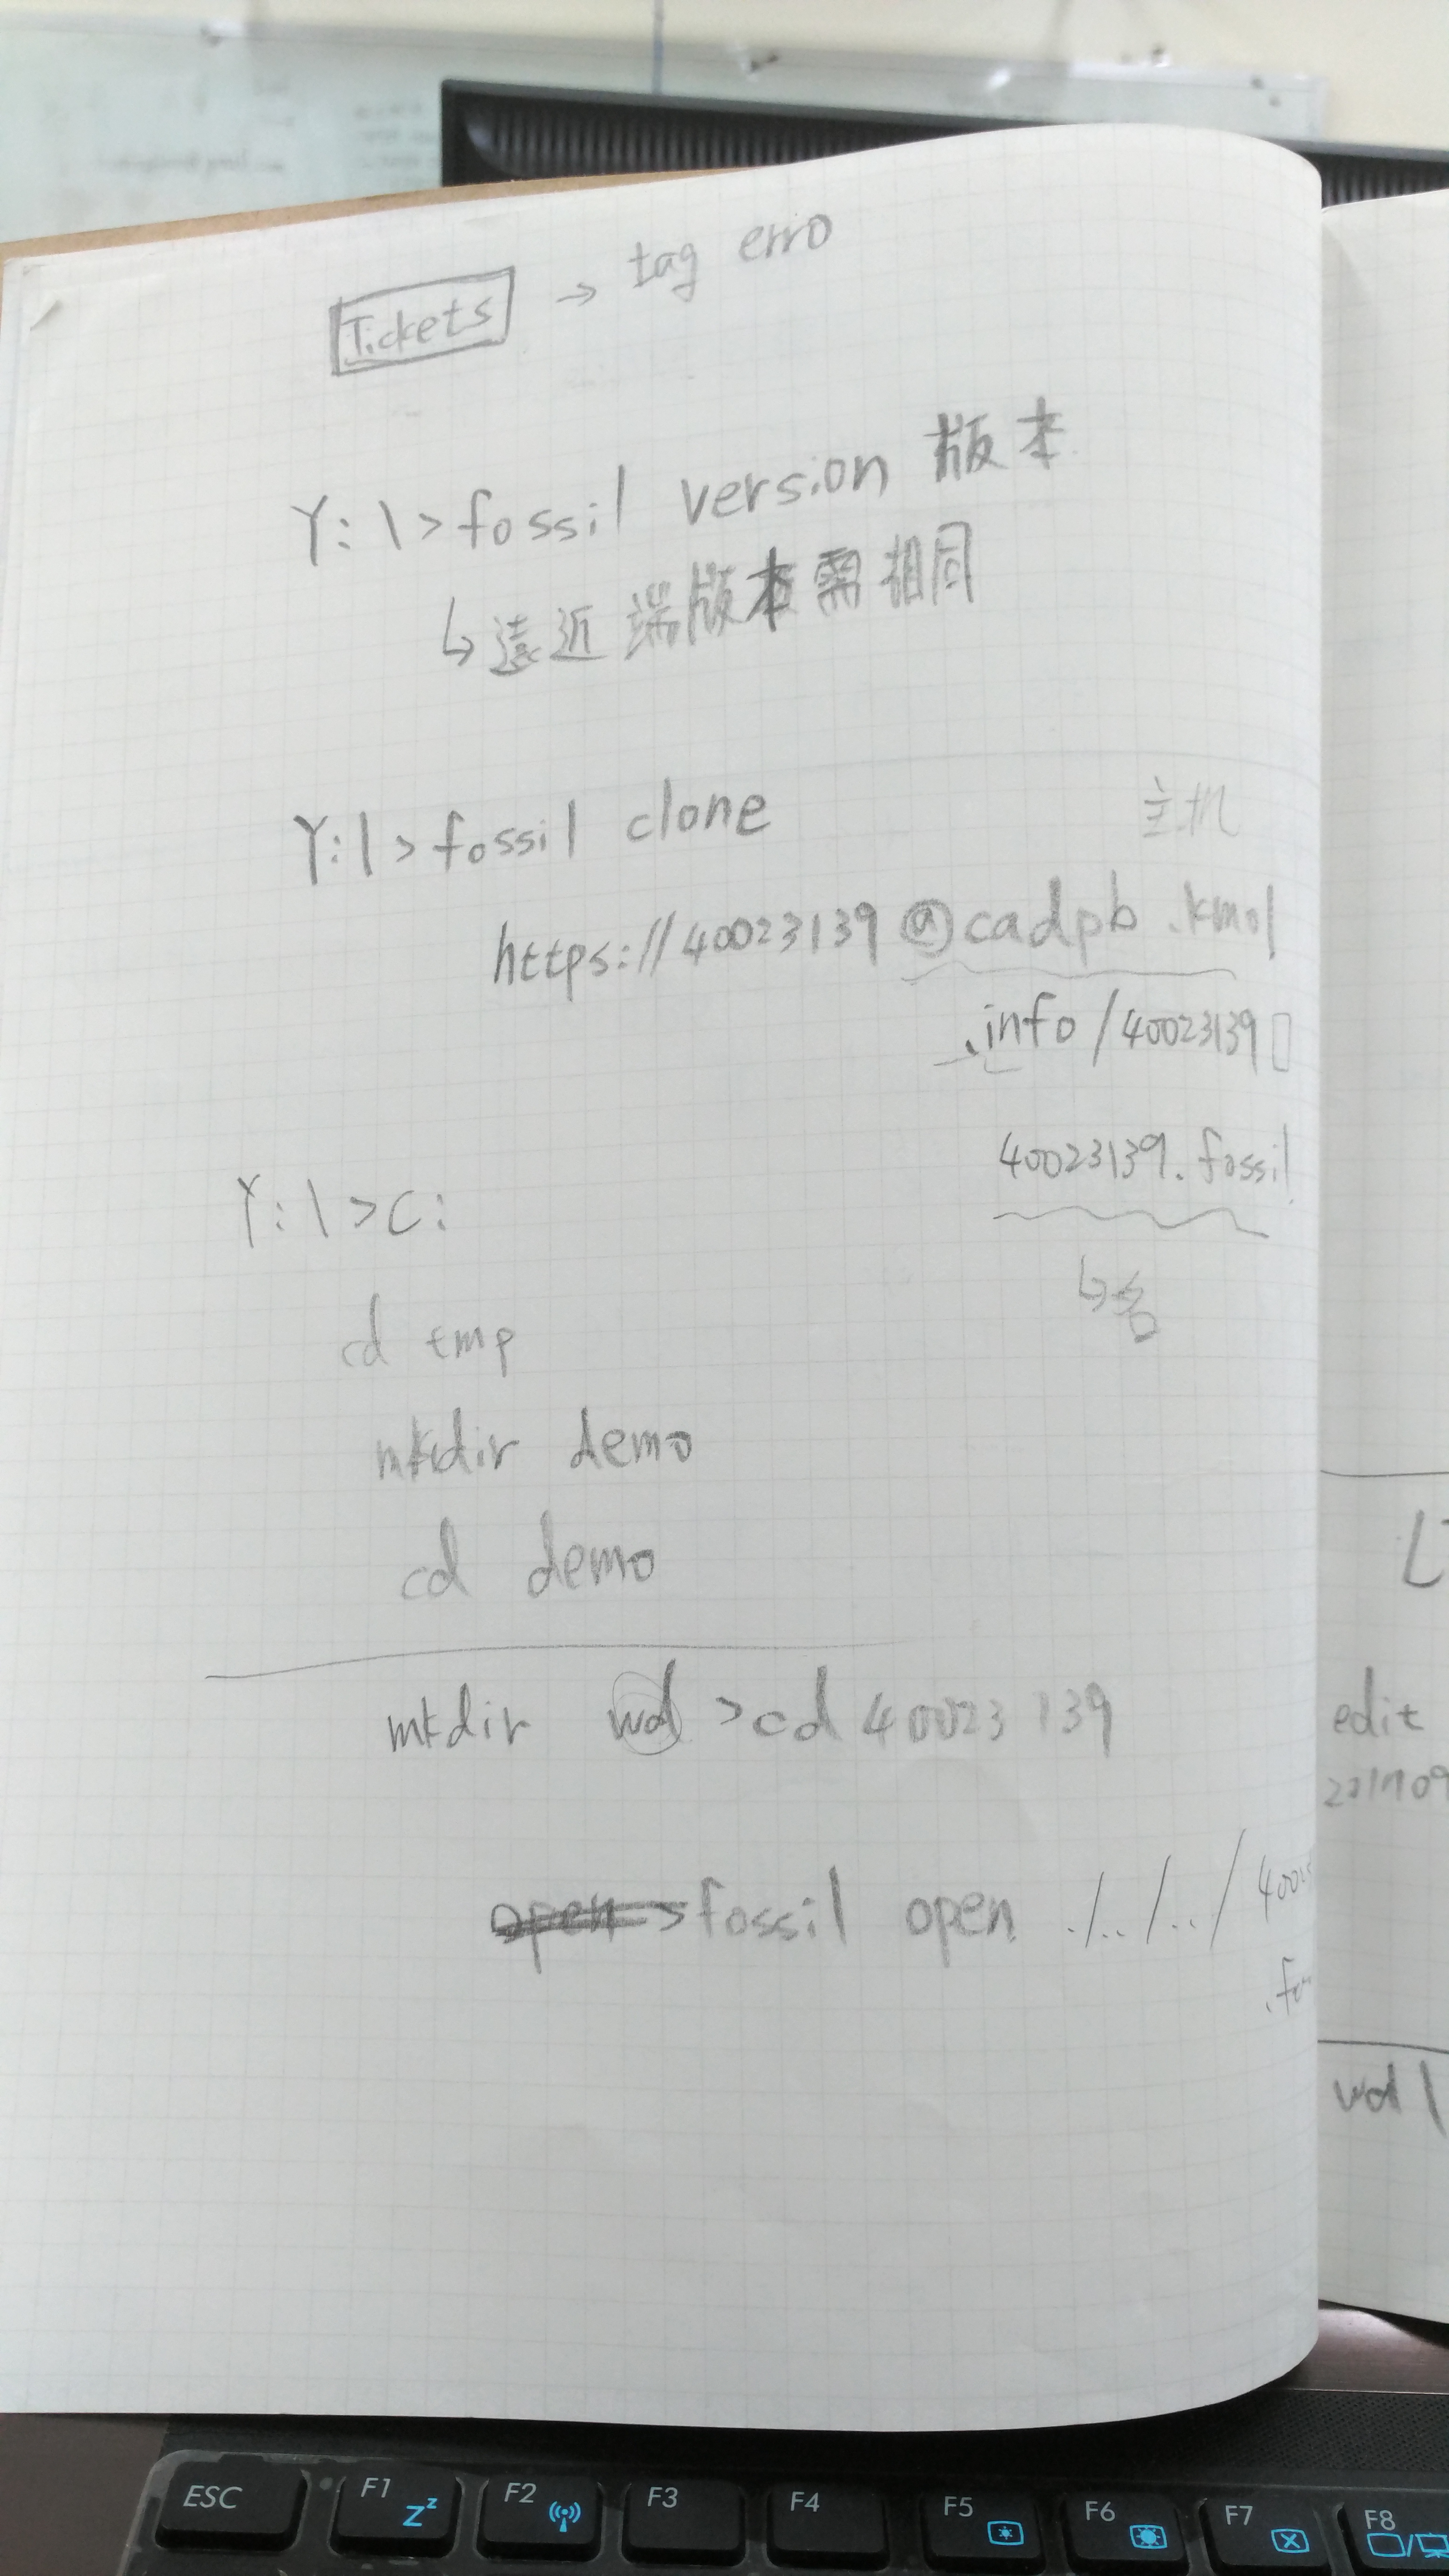 Tickets → tag erro
Y:\>fossil version 版本
↳遠近端版本需相同
Y:\>fossil clone
主机
https://40023139@cadpb.kmol
.info/40023139
40023139.fossil
↳名
Y:\>C:
cd tmp
mkdir demo
cd demo
mkdir wd >cd 40023139
>fossil open ./../../
edit
wd
ESC F1 Zz F2 F3 F4 F5 F6 F7 F8